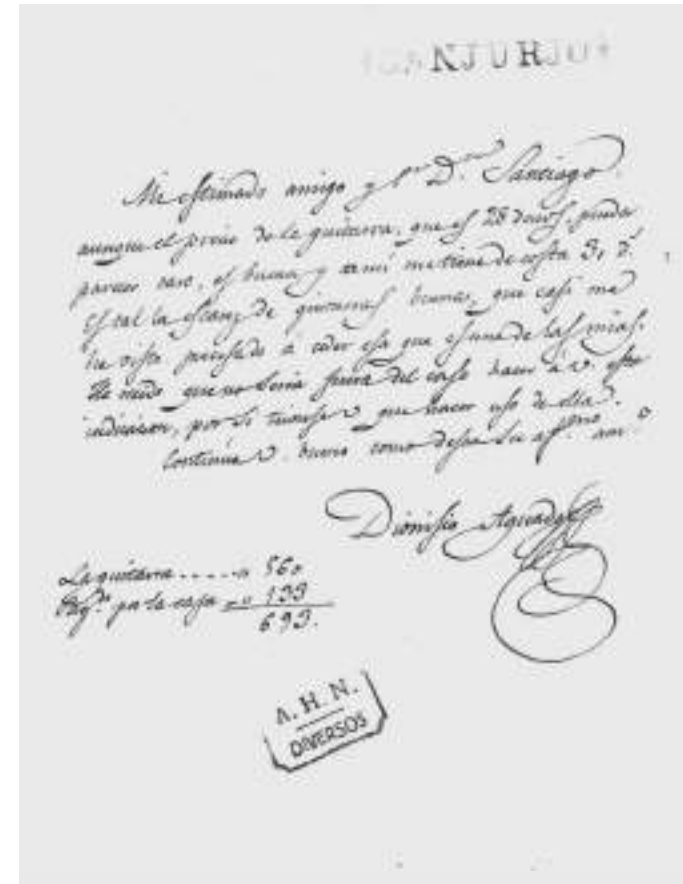 SANJURJO
Mi estimado amigo y Sr. Dn. Santiago.
aunque el precio de la guitarra, que es 28 duros, pueda
parecer caro, es buena y a mí me tiene de costa 31 d.s
Es tal la escasez de guitarras buenas, que casi me
he visto precisado á ceder esa que es una de las mias.
He creido que no seria fuera del caso hacer á V. esta
indicacion, por si tuviese V. que hacer uso de ella.
Continúe V. bueno como desea su af.mo am.o
Dionisio Aguado
La guitarra ..... 560
por la caja 133
693.
A. H. N.
DIVERSOS